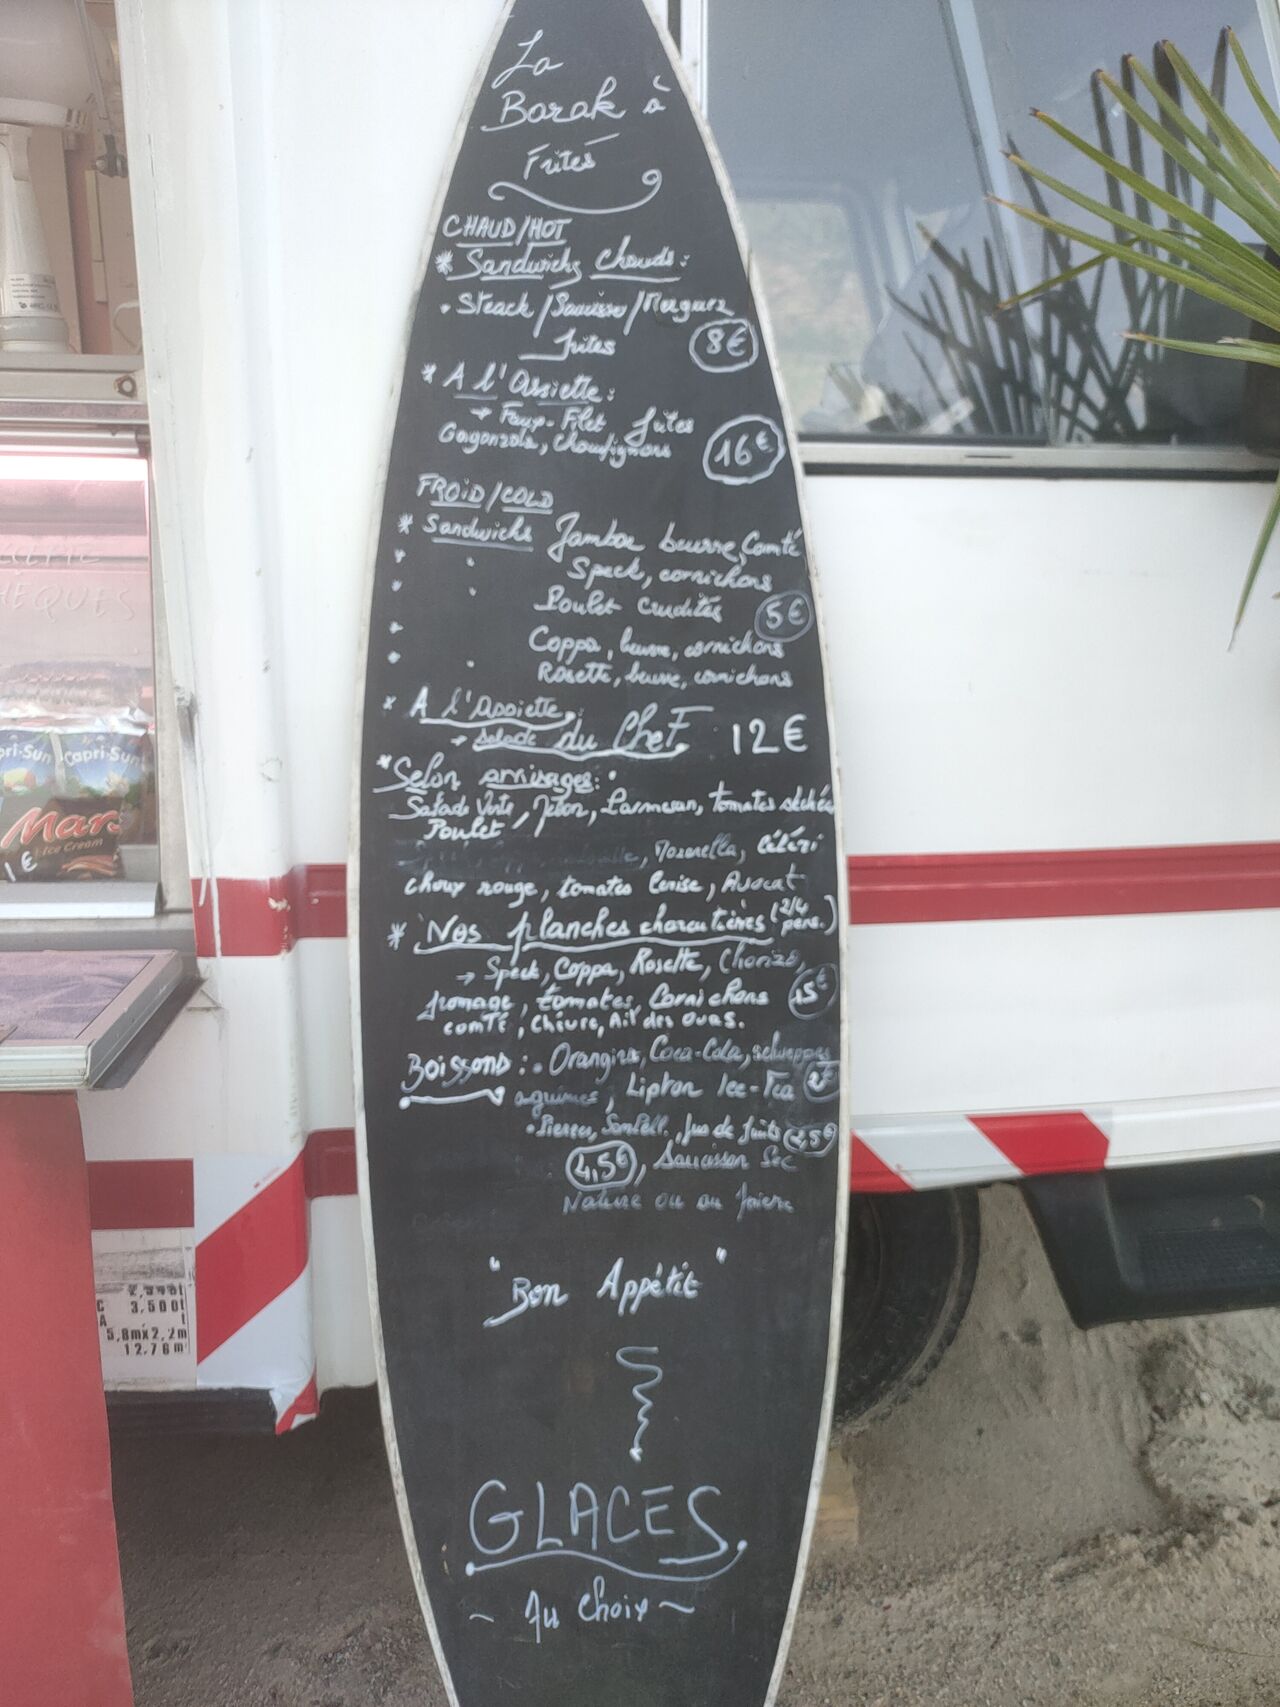 La
Barak à
Frites
CHAUD/HOT
* Sandwichs Chauds :
• Steack / Saucisse / Merguez
frites
8€
* A l'Assiette :
→ Faux-Filet, frites
Gagonzola, Champignons
16€
FROiD/COLD
* Sandwichs Jambon beurre, Comté
Speck, cornichons
Poulet Crudités 5€
Coppa, beurre, cornichons
Rosette, beurre, cornichons
* A l'Assiette :
→ Salade du CheF 12€
* Selon arrivages :
Salade Verte, Melon, Parmesan, tomates séchées
Poulet
Mozzarella, Céléri
choux rouge, tomates Cerise, Avocat
* Nos planches charcutières (2/4 pers.)
→ Speck, Coppa, Rosette, Chorizo,
fromage, tomates, Cornichons 15€
comTé, Chèvre, Ail des Ours.
BOISSONS : • Orangina, Coca-Cola, schweppes
agrumes, Lipton Ice-Tea 2€
• Perrier, SanPell, Jus de fruits 2,5€
4,5€, Saucisson Sec
Nature ou au
"Bon Appétit"
GLACES
~ Au Choix ~
HEQUES
Capri-Sun
Mars
Ice Cream
1€
3,500t
5,8mx2,2m
12,76m²